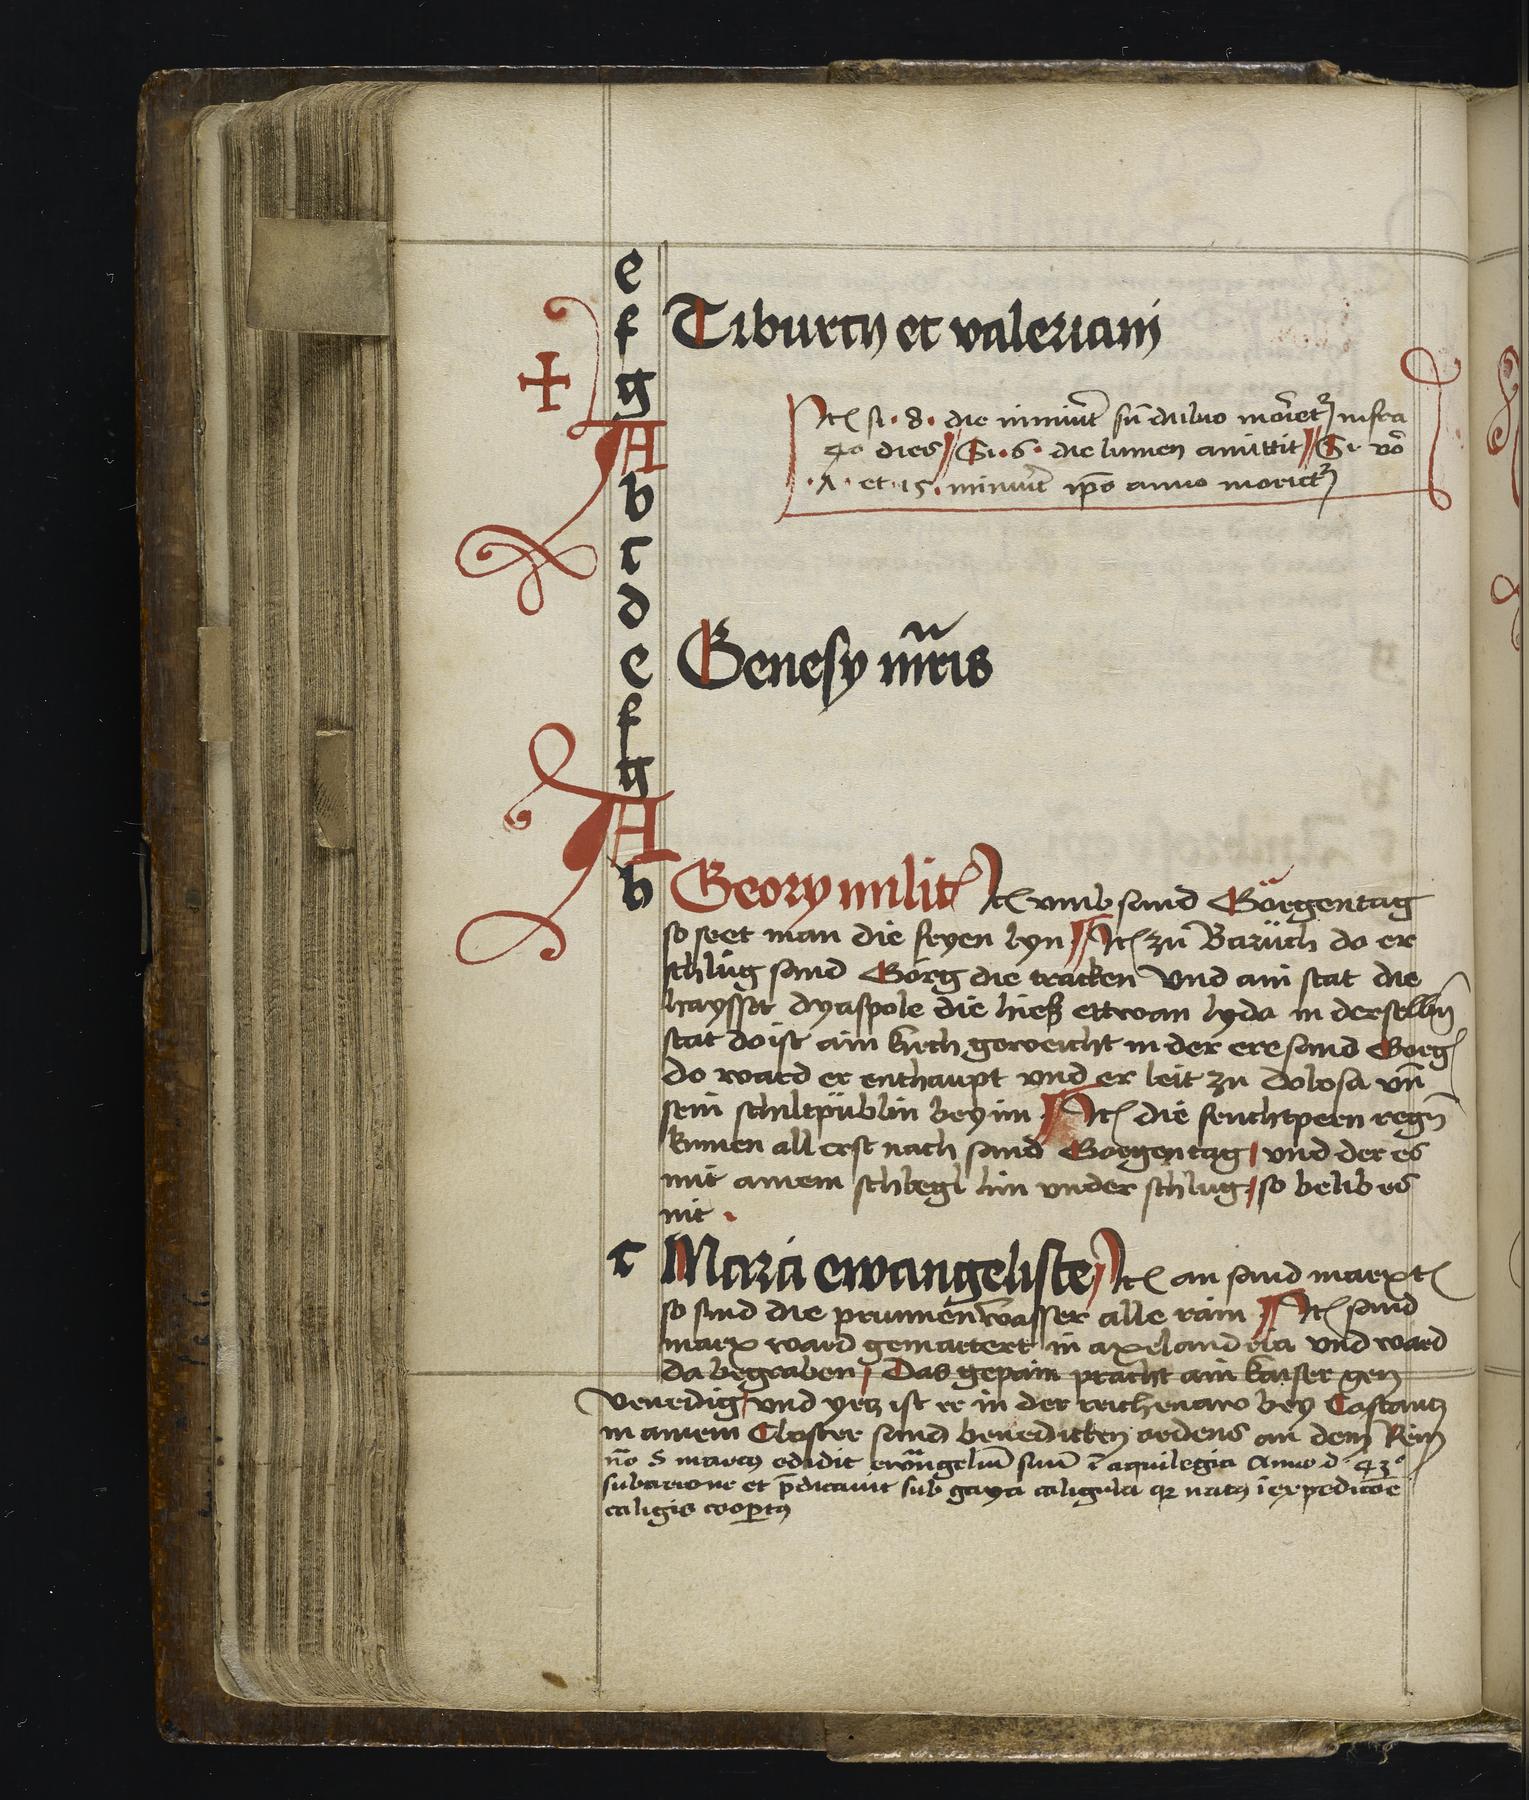 e
f Tiburcy et valeriani
g
Itē si · 8 · die minuūt sūdubio mōietr̄ infra
A
40 dies Si · 6 · die lumen amittit Si vō
· 1 · et · 15 · minuūt ip̄o anno morietr̄
b
c
d
e Genesy mr̄is
f
g
A
b Geory milit Itē vmb sand Görgentag
so seet man die seyen lyn Itē zu Barüch do er
schlůg sand Görg die tracken Vnd ain stat die
haysset dyaspole die hieß ettwan lyda in derselbn̄
stat do ist ain kirch geweicht in der ere sand Görg
do ward er enthaupt vnd er leit zu dolosa vn̄
sein schiltpüblin bey im Itē die feuchtpern regn̄
kumen all erst nach sand Görgentag vnd der es
mit ainem schlegl hin vnder schlug so belib es
nit .
c Marci ewangeliste Itē an sand marxtē
so sind die prunnen wasser alle rain Itē sand
marx ward gemartert in axelandria vnd ward
da begraben Das gepain pracht ain kaiser gen
Venedig vnd yetz ist er in der reichenaw bey Costantz
in ainem Closter sand benedicten ordens an dem Rein
n̄o S marcꝰ edidit ewāngeliū suū ī aquilegia Anno d 43°
sub et p̄dicauit sub gaya caligula qꝛ natꝰ ī expedicōe
caligis coop̄tꝰ